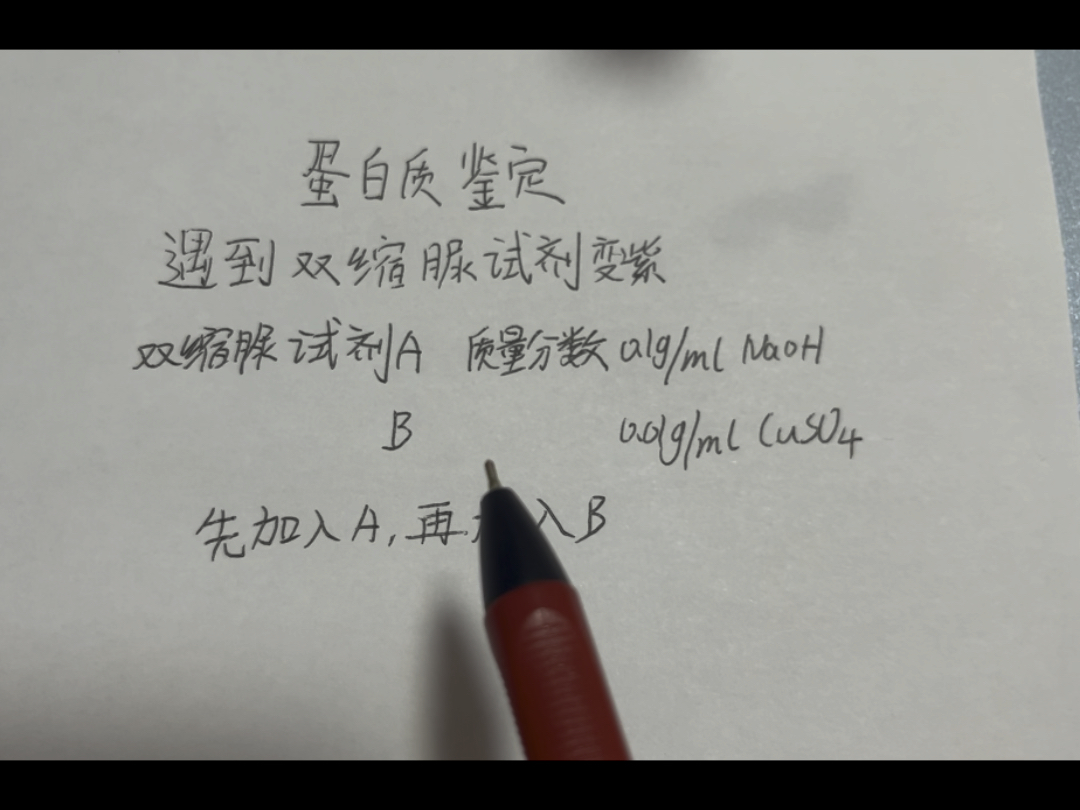 蛋白质鉴定
遇到双缩脲试剂变紫
双缩脲试剂A 质量分数 0.1g/ml NaOH
B 0.01g/ml CuSO4
先加入A,再入B